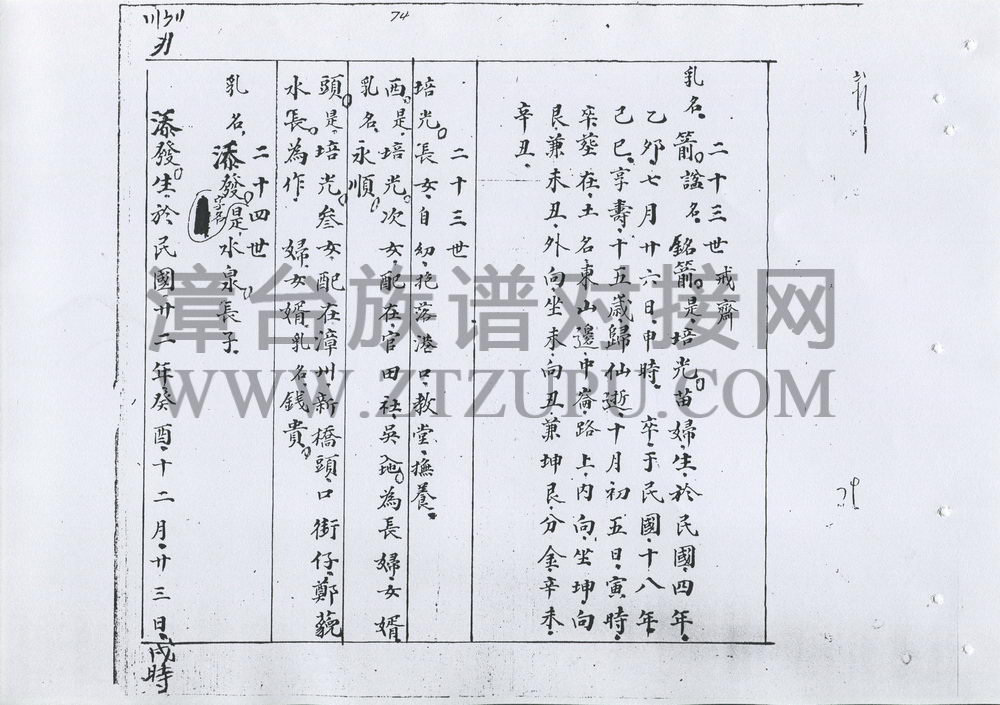 74
二十三世 戒齋
乳名、箭。諡名、銘箭。是、培光。苗婦、生、於民國、四年、
乙夘七月廿六日、申時、 卒、于民國、十八年、
己巳、享壽、十五歲、歸仙逝、十月初五日、寅時、
卒葬在、土名、東山邊、中崙、路上、內向、坐坤、向
艮、兼未丑、外向、坐未、向丑、兼坤艮、分金、辛未、
辛丑、
二十三世
培光。長女、自幼、抱落港口、教堂、撫養。
西。是、培光。次女、配在、官田社、吳 為長婦、女婿、
乳名、永順。
頭。是、培光。叁女、配在、漳州、新橋頭、口街仔、鄭藐
水長。為作、 婦、女婿、乳名、錢貴。
二十四世
乳名、添發。是、水泉。長子、
字名
添發。生、於民國廿二年、癸酉、十二月、廿三日、戌時
漳台族谱对接网
WWW.ZTZUPU.COM